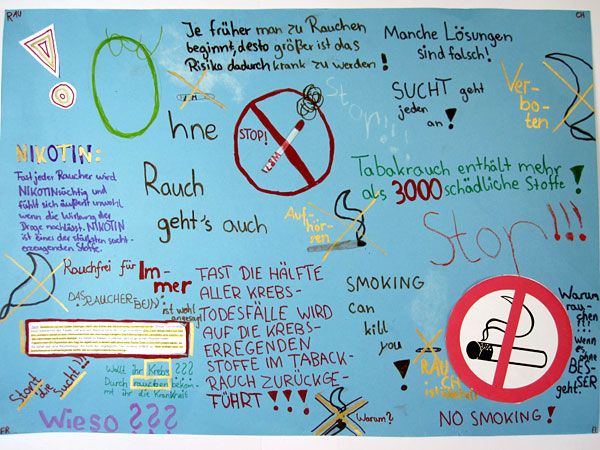 RAU
CH
Je früher man zu Rauchen
beginnt, desto größer ist das
Risiko dadurch krank zu werden!
Manche Lösungen
sind falsch!
Ohne
Rauch
geht's auch
STOP!
Stop!!!
SUCHT geht
jeden
an!
Ver-
bo-
ten
NIKOTIN:
Fast jeder Raucher wird
NIKOTINsüchtig und
fühlt sich äußerst unwohl,
wenn die Wirkung der
Droge nachlässt. NIKOTIN
ist eines der stärksten sucht-
erzeugenden Stoffe.
Tabakrauch enthält mehr
als 3000 schädliche Stoffe!
Auf-
hö-
ren
Stop!!!
Rauchfrei für Im-
mer
DAS RAUCHER-
BEIN
ist wohl
angesagt
TAST DIE HÄLFTE
ALLER KREBS-
TODESFÄLLE WIRD
AUF DIE KREBS-
ERREGENDEN
STOFFE IM TABACK-
RAUCH ZURÜCKGE-
FÜHRT!!!
SMOKING
can
kill
you
!
RAU
CH
Warum
rau-
chen
wenn
es
ohne
BES-
SER
geht.
Stoppt
die
Sucht!!!
Wollt ihr Krebs???
Durch rauchen bekom-
mt ihr die Krankheit
Wieso???
Warum?
NO SMOKING!
ER
EI